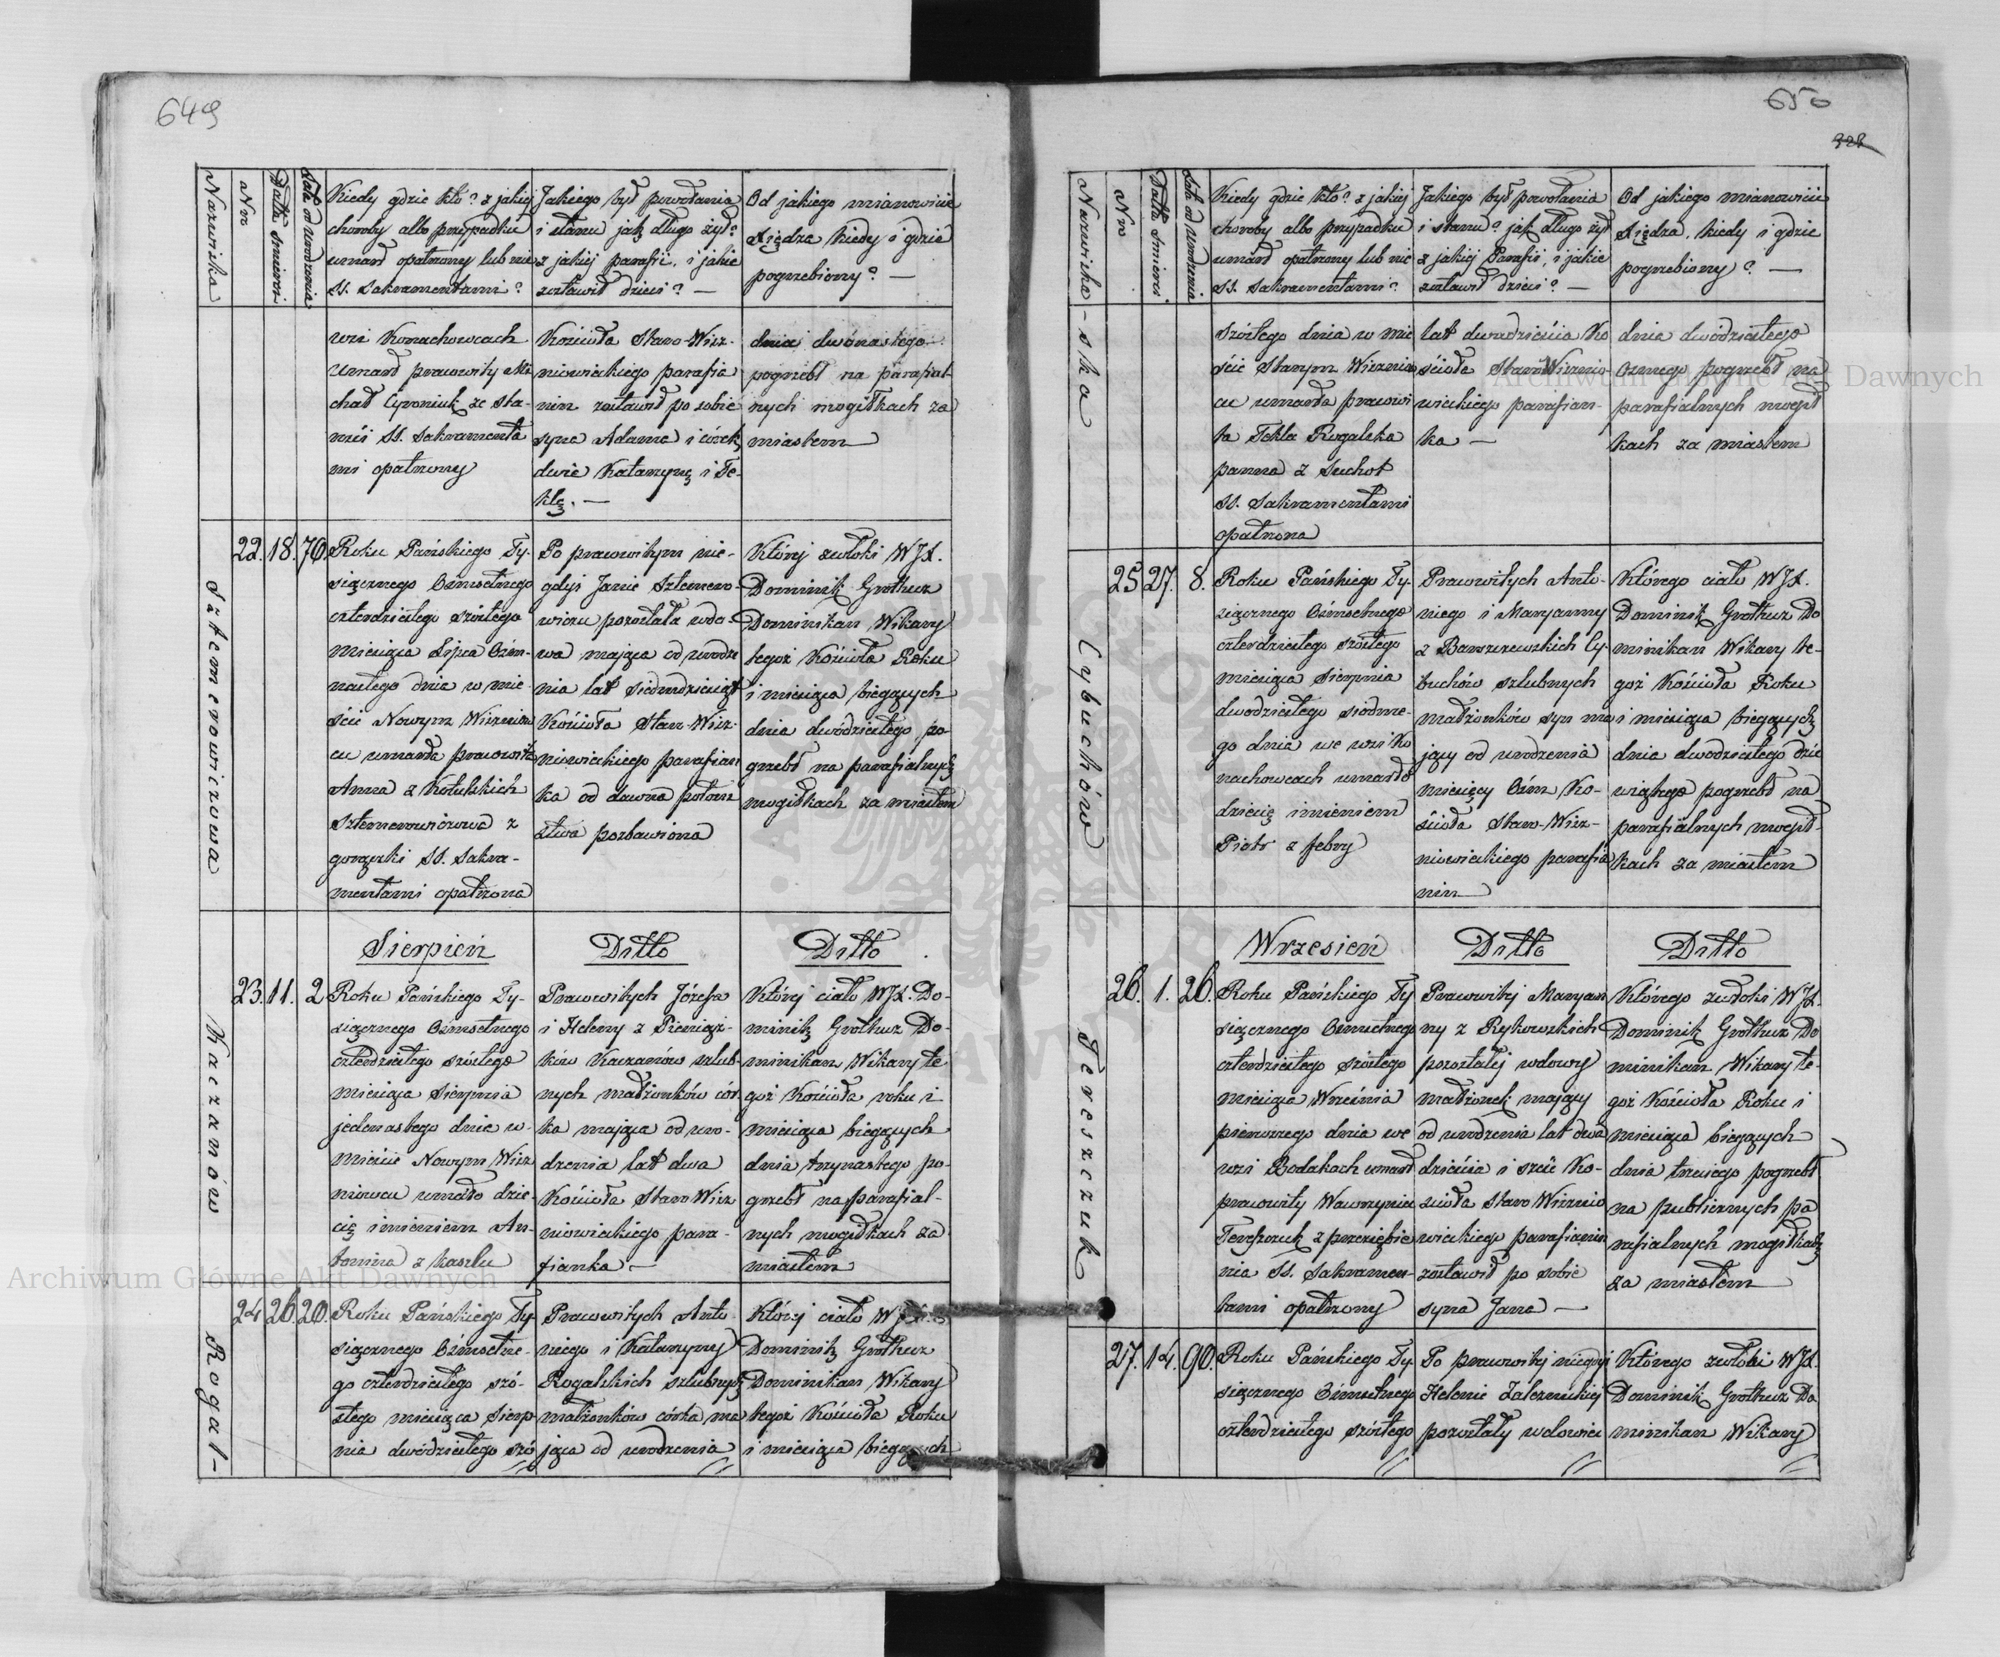 649
Nazwiska
Nro
Datta śmierci
Lata od urodzenia
Kiedy gdzie kto? z jakiej
choroby albo przypadku
umarł opatrzony lub nie
SS. Sakramentami?
Jakiego był powołania
i stanu jak długo żył?
z jakiej parafii, i jakie
zostawił dzieci? —
Od jakiego mianowicie
Xiędza kiedy i gdzie
pogrzebiony? —
wsi Konachowcach
umarł pracowity Mi
chał Cyroniuk ze sta-
rości SS. Sakramenta
mi opatrzony
Kościoła Staro-Wisz-
niowieckiego parafia
nin zostawił po sobie
syna Adama i córek
dwie Katarzynę i Te-
klę. —
dnia dwónastego
pogrzebł na parafial-
nych mogiłkach za
miastem
Sztemerowiczowa
22. 18. 70.
Roku Pańskiego Ty-
siącznego Ośmsetnego
czterdziestego szóstego
miesiąca Lipca Ośm-
nastego dnia w mie-
ście Nowym Wiszniow
cu umarła pracowita
Anna z Kotulskich
Sztemerowiczowa z
gorączki SS. Sakra-
mentami opatrzona
Po pracowitym nie-
gdyś Janie Sztemero-
wiczu pozostała wdo-
wa mająca od urodze
nia lat siedmdziesiąt
Kościoła Staro-Wisz-
niowieckiego parafian
ka od dawna potom
stwa pozbawiona
Której zwłoki WJX.
Dominik Grothuz
Dominikan Wikary
tegoż Kościoła Roku
i miesiąca bieżących
dnia dwódziestego po-
grzebł na parafialnych
mogiłkach za miastem
Sierpień Ditto Ditto
Kaczanów
23. 11. 2
Roku Pańskiego Ty-
siącznego Ośmsetnego
czterdziestego szóstego
miesiąca Sierpnia
jedenastego dnia w
mieście Nowym Wisz
niowcu umarło dzie-
cię imieniem An-
tonina z kaszlu
Pracowitych Józefa
i Heleny z Pieniąż-
ków Kaczanów szlub-
nych małżonków cór
ka mająca od uro-
dzenia lat dwa
Kościoła Staro Wisz
niowieckiego para-
fianka —
Której ciało WJX. Do-
minik Grothuz Do-
minikan Wikary te
goż Kościoła roku i
miesiąca bieżących
dnia trzynastego po-
grzebł na parafial-
nych mogiłkach za
miastem
Rogal-
24 26. 20.
Roku Pańskiego Ty-
siącznego Ośmsetne-
go czterdziestego szó-
stego miesiąca Sierp
nia dwódziestego szó
Pracowitych Anto-
niego i Katarzyny
Rogalskich szlubnych
małżonków córka ma
jąca od urodzenia
Której ciało WJX.
Dominik Grothuz
Dominikan Wikary
tegoż Kościoła Roku
i miesiąca bieżących
650
328
Nazwiska
Nro
Datta śmierci
Lata od urodzenia
Kiedy gdzie kto? z jakiej
choroby albo przypadku
umarł opatrzony lub nie
SS. Sakramentami?
Jakiego był powołania
i stanu? jak długo żył
z jakiej Parafii, i jakie
zostawił dzieci? —
Od jakiego mianowicie
Xiędza, kiedy i gdzie
pogrzebiony? —
-ska
szóstego dnia w mie
ście Starym Wiszniow
cu umarła pracowi
ta Tekla Rogalska
panna z Suchot
SS. Sakramentami
opatrzona
lat dwadzieścia Ko
ścioła Staro Wisznio-
wieckiego parafian-
ka —
dnia dwódziestego
Osmego pogrzebł na
parafialnych mogił
kach za miastem
Cybuchów
25 27. 8.
Roku Pańskiego Ty-
siącznego Ośmsetnego
czterdziestego szóstego
miesiąca Sierpnia
dwodziestego siódme-
go dnia we wsi Ko
nachowcach umarło
dziecię imieniem
Piotr z febry
Pracowitych Anto-
niego i Maryanny
z Barszczewskich Cy-
buchów szlubnych
małżonków syn ma
jący od urodzenia
miesięcy Ośm Ko-
ścioła Staro-Wisz-
niowieckiego parafia
nin
Którego ciało WJX.
Dominik Grothuz Do
minikan Wikary te-
goż Kościoła Roku
i miesiąca bieżących
dnia dwodziestego dzie
wiątego pogrzebł na
parafialnych mogił-
kach za miastem
Wrzesień Ditto Ditto
Tereszczuk
26. 1. 26.
Roku Pańskiego Ty
siącznego Ośmsetnego
czterdziestego szóstego
miesiąca Września
pierwszego dnia we
wsi Bodakach umarł
pracowity Wawrzyniec
Tereszczuk z przeziębie
nia SS. Sakramen-
tami opatrzony
Pracowitej Maryan
ny z Rykowskich
pozostałej wdowy
małżonek mający
od urodzenia lat dwa
dzieścia i sześć Ko-
ścioła Staro Wisznio
wieckiego parafianin
zostawił po sobie
syna Jana —
Którego zwłoki WJX.
Dominik Grothuz Do
minikan Wikary te-
goż Kościoła Roku i
miesiąca bieżących
dnia trzeciego pogrzebł
na publicznych pa
rafialnych mogiłkach
za miastem
27. 14. 90.
Roku Pańskiego Ty-
siącznego Ośmsetnego
czterdziestego szóstego
Po pracowitej niegdyś
Helenie Zaleznickiej
pozostały wdowiec
Którego zwłoki WJX.
Dominik Grothuz Do
minikan Wikary
Archiwum Główne Akt Dawnych
Archiwum Główne Akt Dawnych